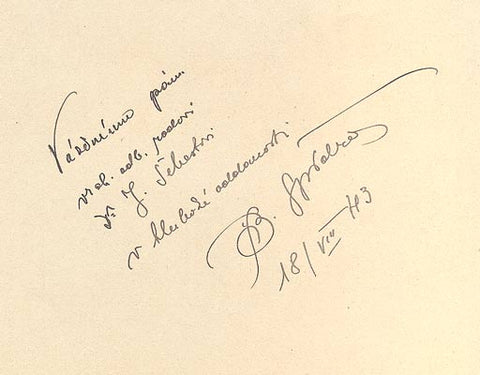 Váženému pánu
vrch. odb. radovi
Dr J. Šebestovi
v hluboké oddanosti
B.
18/VIII 43